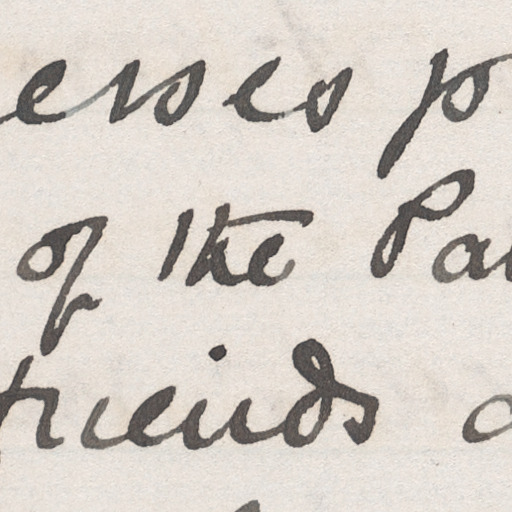 erses p
of the Pa
friends